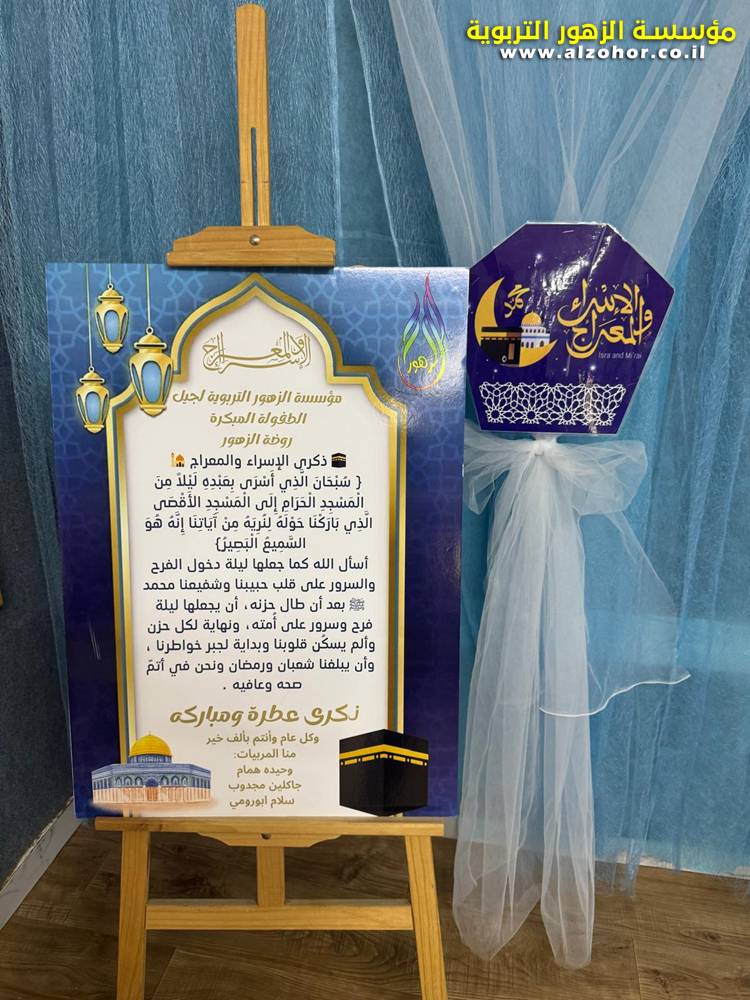 مؤسسة الزهور التربوية
www.alzohor.co.il
الإسراء والمعراج
الزهور
مؤسسة الزهور التربوية لجيل
الطفولة المبكرة
روضة الزهور
🕋 ذكرى الإسراء والمعراج 🕌
{ سُبْحَانَ الَّذِي أَسْرَى بِعَبْدِهِ لَيْلاً مِنَ
الْمَسْجِدِ الْحَرَامِ إِلَى الْمَسْجِدِ الأَقْصَى
الَّذِي بَارَكْنَا حَوْلَهُ لِنُرِيَهُ مِنْ آيَاتِنَا إِنَّهُ هُوَ
السَّمِيعُ الْبَصِيرُ}
أسأل الله كما جعلها ليلة دخول الفرح
والسرور على قلب حبيبنا وشفيعنا محمد
ﷺ بعد أن طال حزنه، أن يجعلها ليلة
فرح وسرور على أُمته، ونهاية لكل حزن
وألم يسكُن قلوبنا وبداية لجبر خواطرنا ،
وأن يبلغنا شعبان ورمضان ونحن في أتمّ
صحه وعافيه .
ذكرى عطرة ومباركه
وكل عام وأنتم بألف خير
منا المربيات:
وحيده همام
جاكلين مجدوب
سلام ابورومي
الإسراء
والمعراج
Isra and Mi'raj